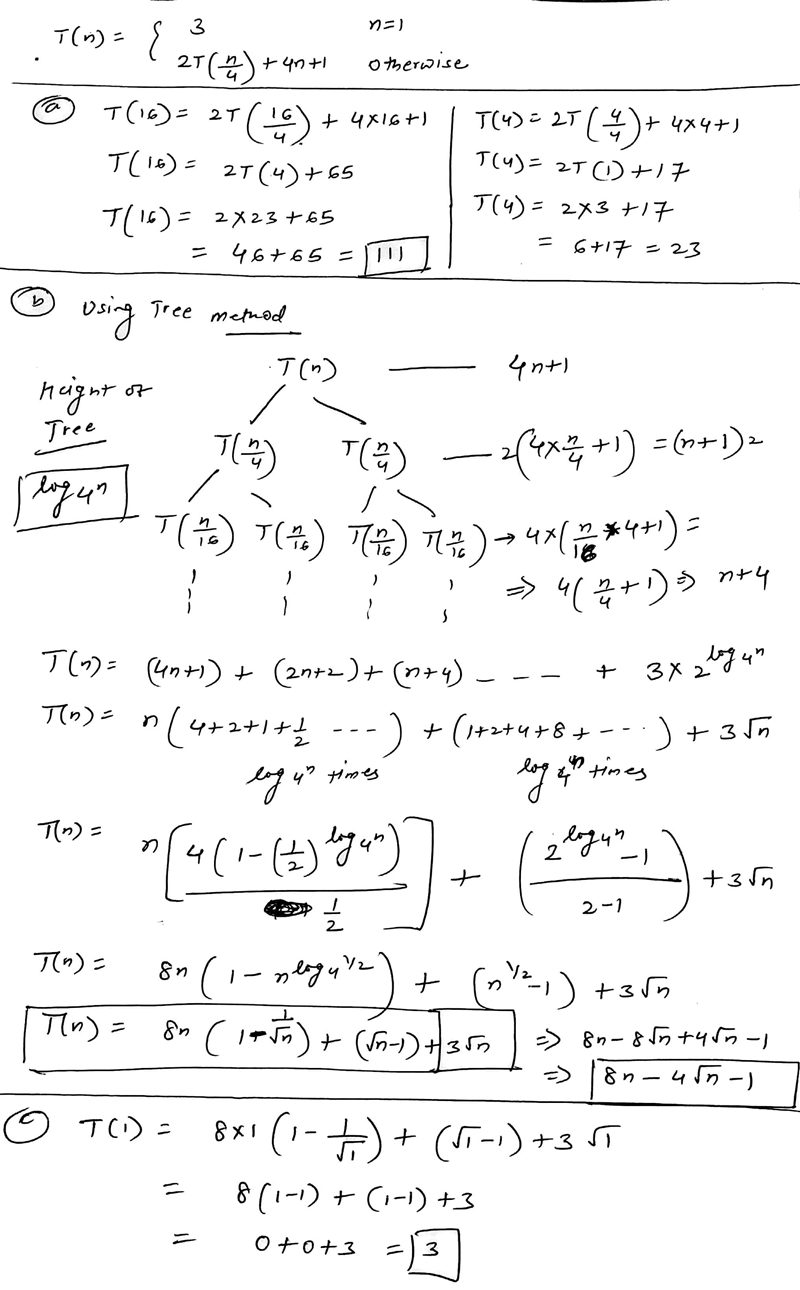 T(n) = { 3 n=1
2T(n/4) + 4n+1 otherwise
(a) T(16) = 2T(16/4) + 4×16+1
T(16) = 2T(4) + 65
T(16) = 2×23+65
= 46+65 = 111
T(4) = 2T(4/4) + 4×4+1
T(4) = 2T(1) + 17
T(4) = 2×3 + 17
= 6+17 = 23
(b) Using Tree method
Height of
Tree
log₄ⁿ
T(n) —— 4n+1
T(n/4) T(n/4) — 2(4×n/4 + 1) = (n+1)2
T(n/16) T(n/16) T(n/16) T(n/16) → 4×(n/16 * 4+1) =
⇒ 4(n/4 + 1) ⇒ n+4
T(n) = (4n+1) + (2n+2) + (n+4) - - - - + 3×2^(log₄ⁿ)
T(n) = n(4+2+1+1/2 ----) + (1+2+4+8+----) + 3√n
log₄ⁿ times log₄ⁿ times
T(n) = n[4(1-(1/2)^(log₄ⁿ)) / (1/2)] + ((2^(log₄ⁿ) - 1) / (2-1)) + 3√n
T(n) = 8n(1 - n^(log₄^(1/2))) + (n^(1/2) - 1) + 3√n
T(n) = 8n(1 - 1/√n) + (√n-1) + 3√n ⇒ 8n-8√n+4√n-1
⇒ 8n-4√n-1
(c) T(1) = 8×1(1 - 1/√1) + (√1-1) + 3√1
= 8(1-1) + (1-1) + 3
= 0+0+3 = 3